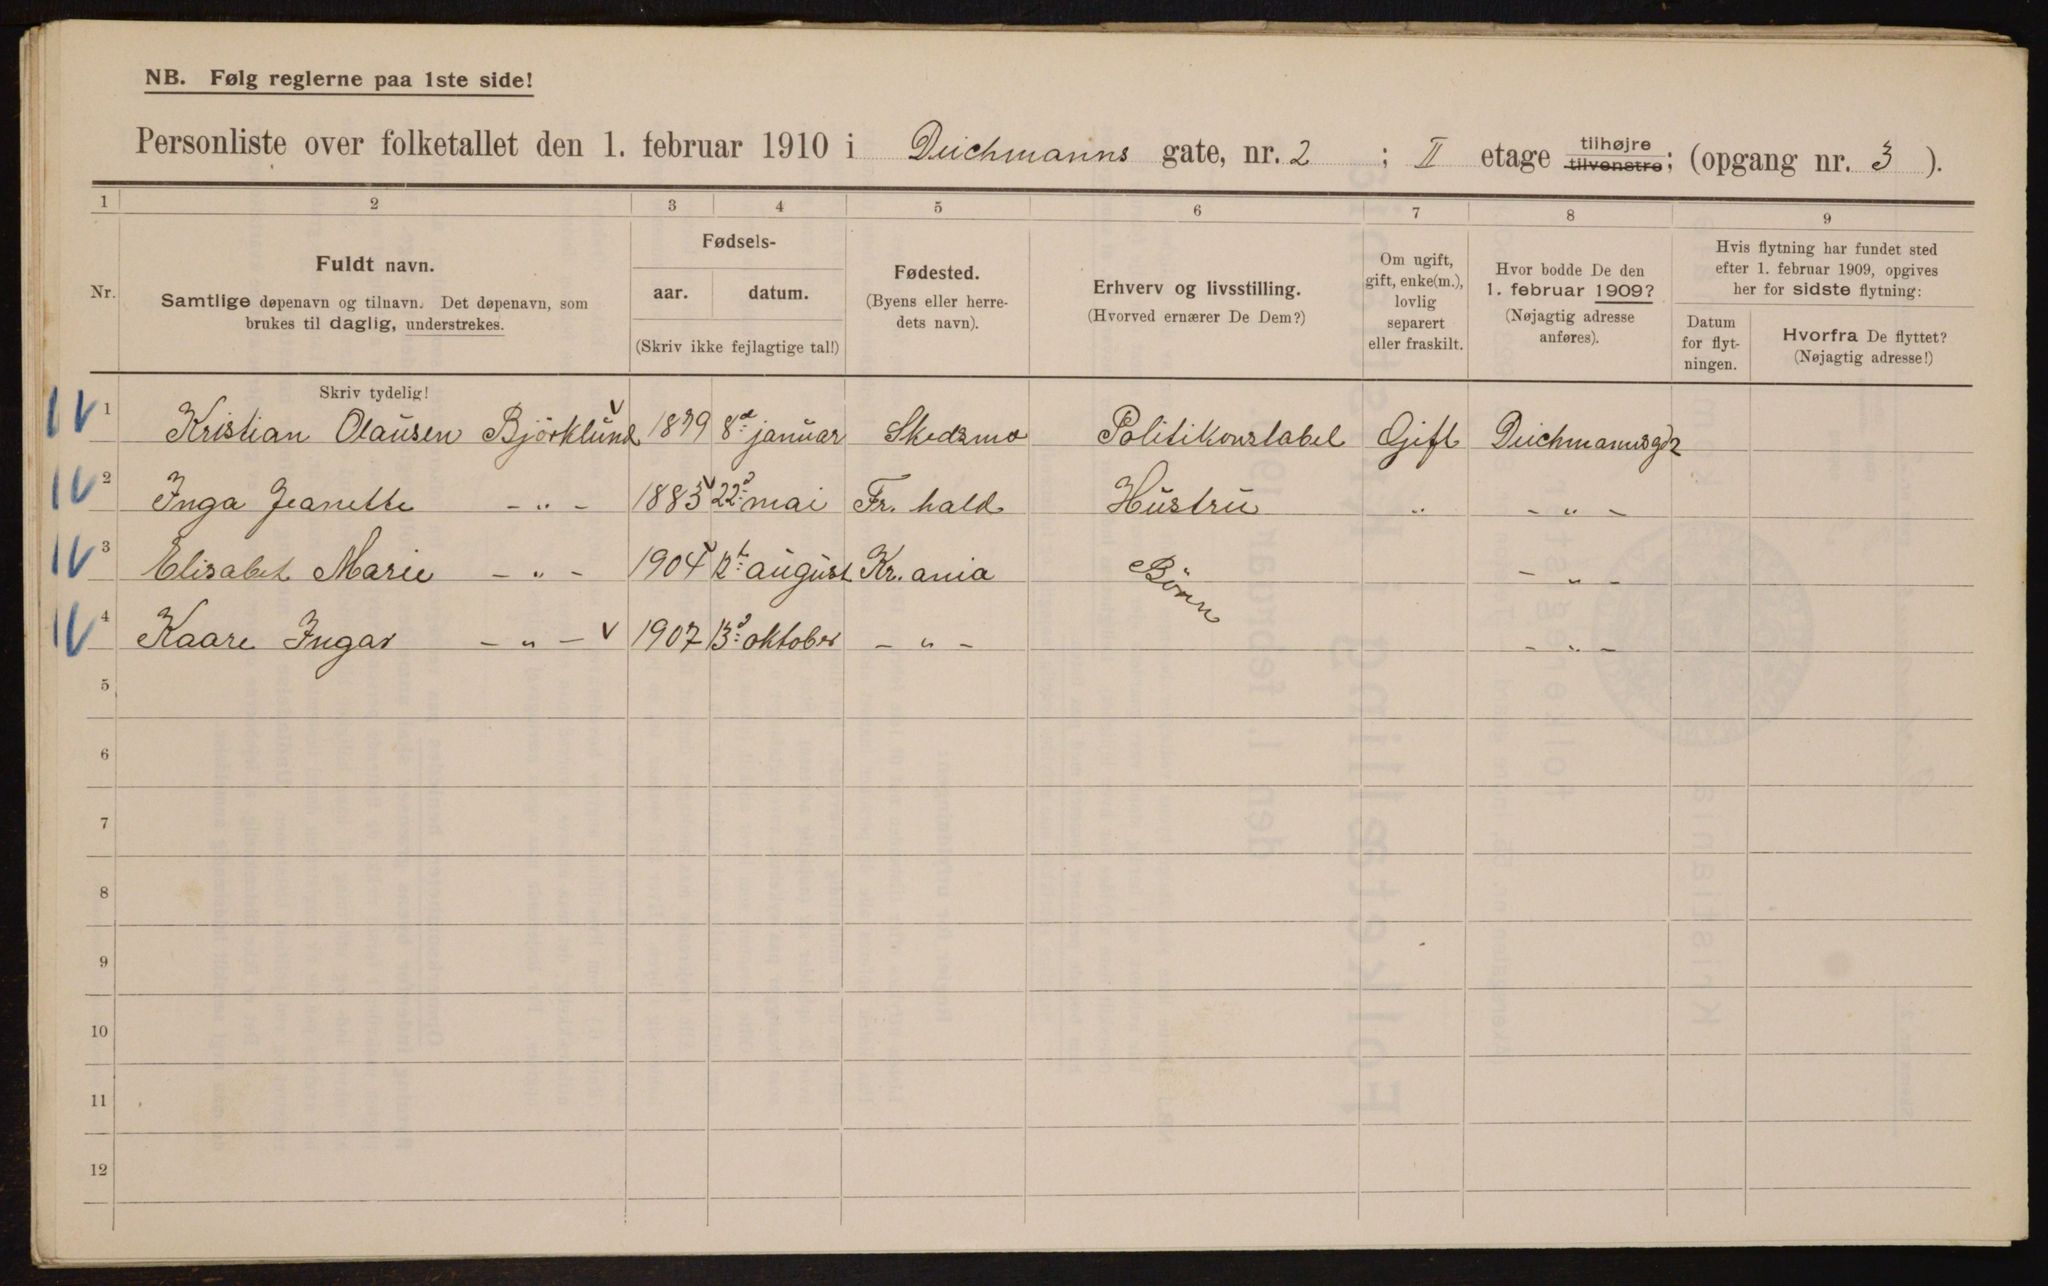 NB. Følg reglerne paa 1ste side!
Personliste over folketallet den 1. februar 1910 i Deichmanns gate, nr. 2 ; II etage tilhøjre tilvenstre; (opgang nr. 3 ).
1 2 3 4 5 6 7 8 9
Nr.
Fuldt navn.
Samtlige døpenavn og tilnavn. Det døpenavn, som
brukes til daglig, understrekes.
Fødsels-
aar. datum.
(Skriv ikke fejlagtige tal!)
Fødested.
(Byens eller herre-
dets navn).
Erhverv og livsstilling.
(Hvorved ernærer De Dem?)
Om ugift,
gift, enke(m.),
lovlig
separert
eller fraskilt.
Hvor bodde De den
1. februar 1909?
(Nøjagtig adresse
anføres).
Hvis flytning har fundet sted
efter 1. februar 1909, opgives
her for sidste flytning:
Datum
for flyt-
ningen.
Hvorfra De flyttet?
(Nøjagtig adresse!)
Skriv tydelig!
1 Kristian Olausen Björklund 1879 8de januar Skedsmo Politikonstabel Gift Deichmannsgd2
2 Inga Jeanette - " - 1885 22 mai Fr. hald Hustru " - " -
3 Elisabet Marie - " - 1904 12te august Kr. ania Börn - " -
4 Kaare Ingar - " - 1907 13 oktober - " - - " -
5
6
7
8
9
10
11
12